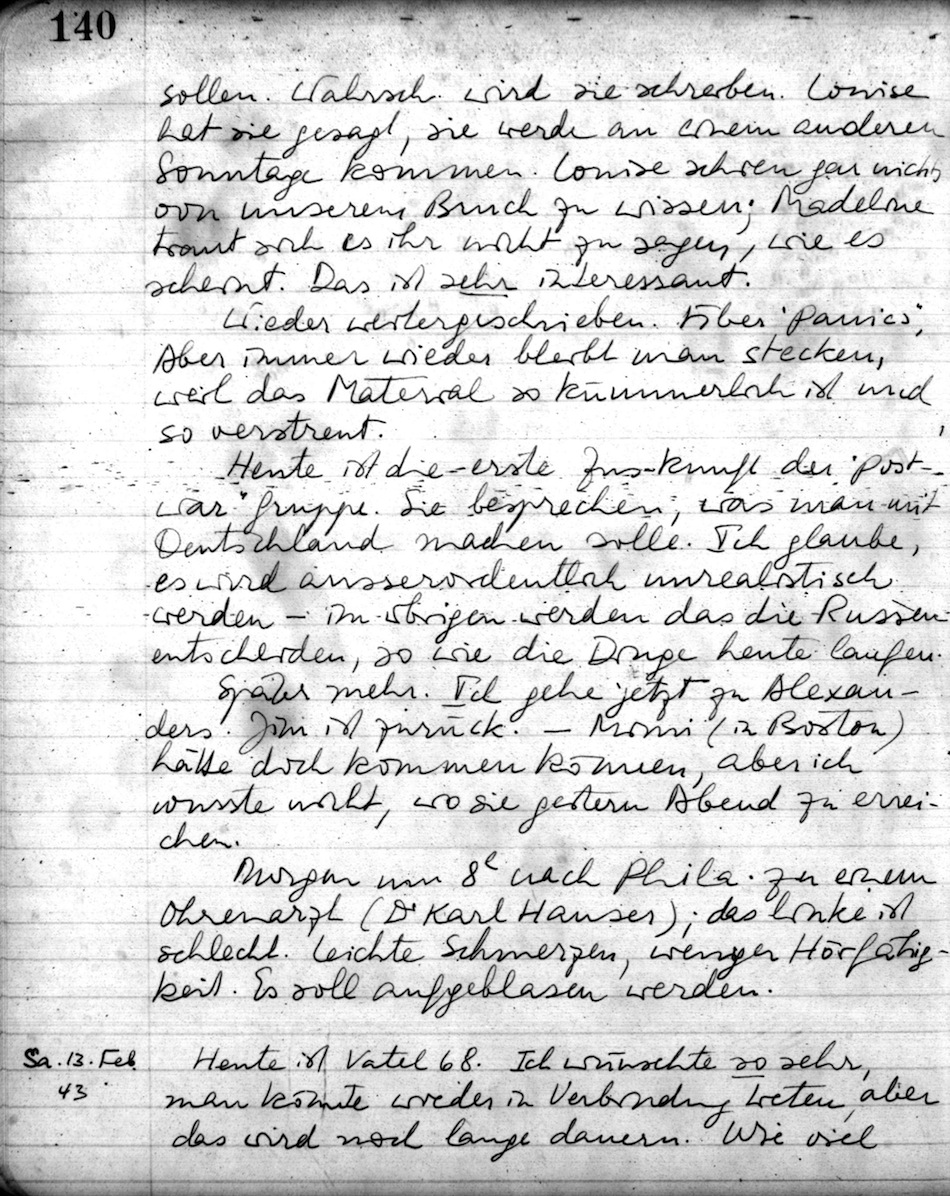 140
sollen. Wahrsch. wird sie schreiben. Louise
hat sie gesagt, sie werde an einem anderen
Sonntage kommen. Louise schien gar nichts
von unserem Bruch zu wissen; Madeleine
traut sich es ihr nicht zu sagen, wie es
scheint. Das ist sehr interessant.
Wieder weitergeschrieben. Über "Panics",
Aber immer wieder bleibt man stecken,
weil das Material so kümmerlich ist und
so verstreut.
Heute ist die erste Zus-kunft der "post-
war" Gruppe. Sie besprechen, was man mit
Deutschland machen solle. Ich glaube,
es wird ausserordentlich unrealistisch
werden – im übrigen werden das die Russen
entscheiden, so wie die Dinge heute laufen.
Später mehr. Ich gehe jetzt zu Alexan-
ders. Jim ist zurück. – Mimi (in Boston)
hätte doch kommen können, aber ich
wusste nicht, wo sie gestern Abend zu errei-
chen.
Morgen um 8 nach Phila. zu einem
Ohrenarzt (Dr Karl Hauser); das linke ist
schlecht. Leichte Schmerzen, weniger Hörfähig-
keit. Es soll aufgeblasen werden.
Sa. 13. Feb
43
Heute ist Vatel 68. Ich wünschte so sehr,
man könnte wieder in Verbindung treten, aber
das wird noch lange dauern. Wie viel